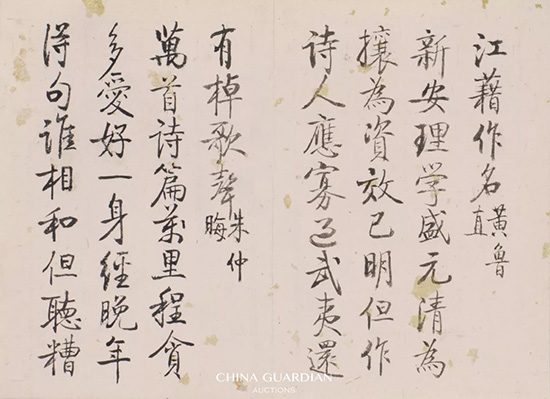 江藉作名黃魯直
新安理学盛元清為
攘為資效已明但作
诗人應寡过武夷還
有棹歌聲朱仲晦
萬首诗篇萬里程貪
多愛好一身經晚年
得句谁相和但聽糟
CHINA GUARDIAN
AUCTIONS